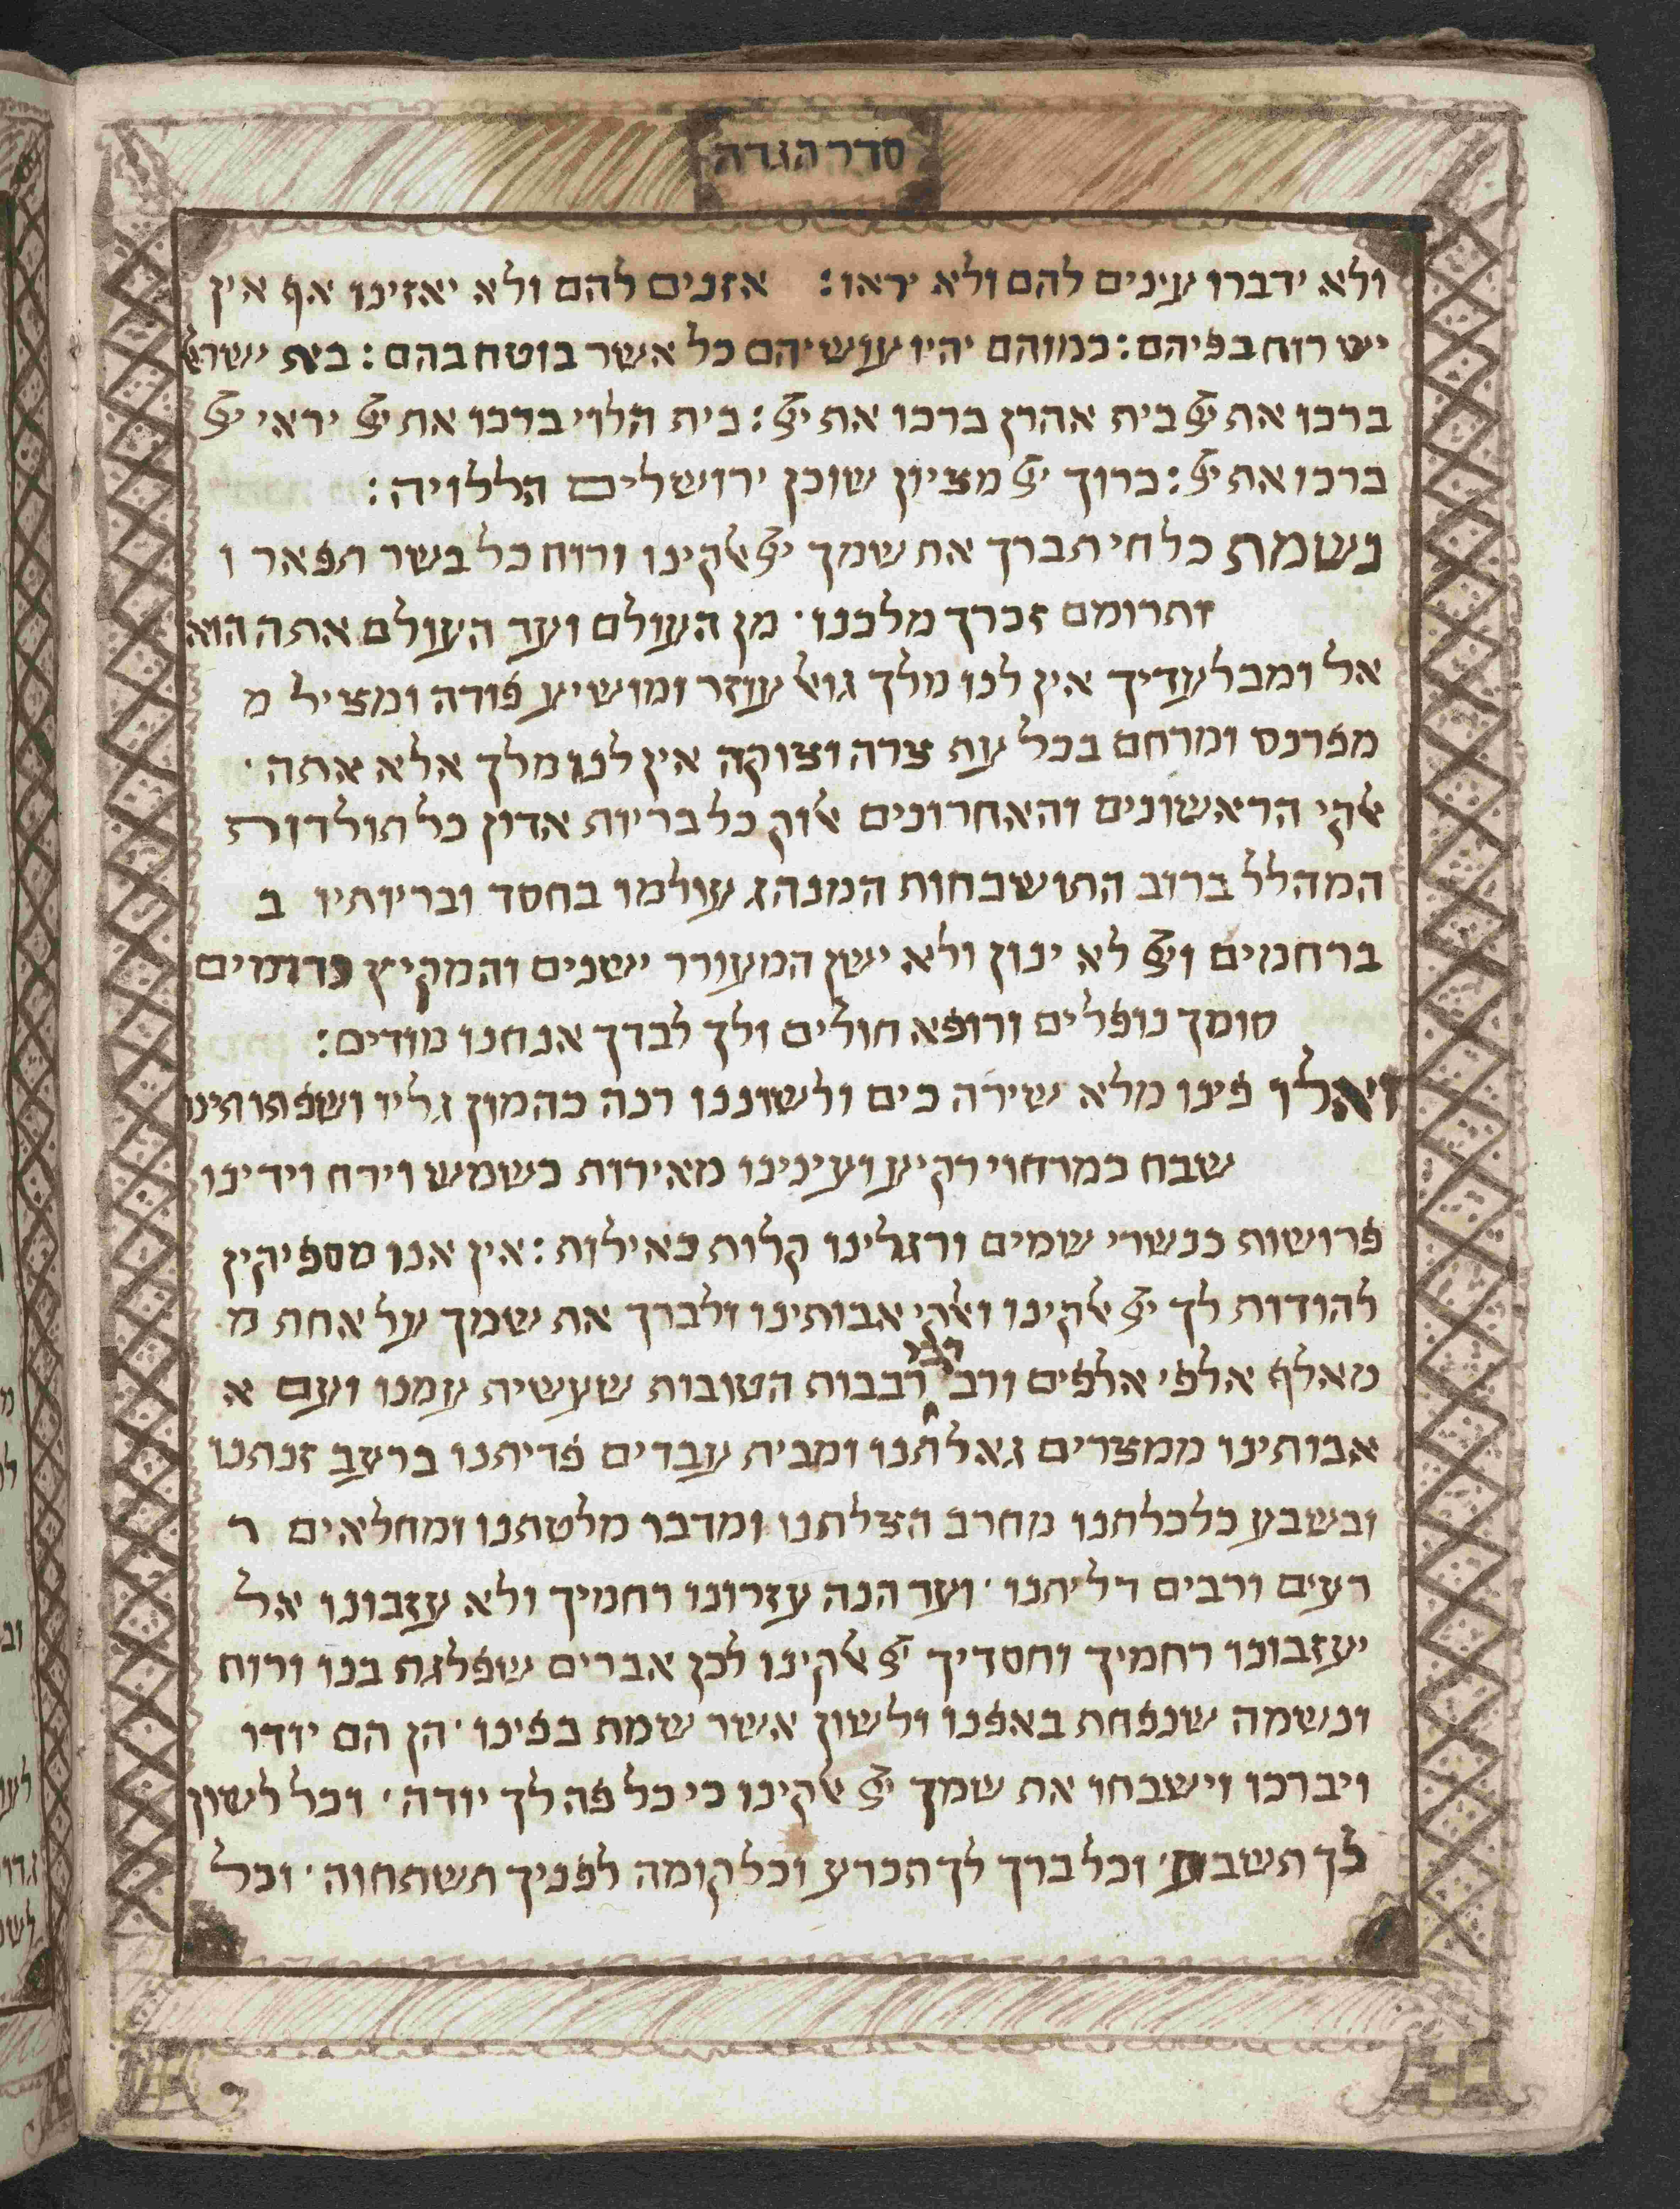 סדר הגדה
ולא ידברו עינים להם ולא יראו: אזנים להם ולא יאזינו אף אין
יש רוח בפיהם: כמוהם יהיו עושיהם כל אשר בוטח בהם: בית ישראל
ברכו את יי בית אהרן ברכו את יי: בית הלוי ברכו את יי יראי יי
ברכו את יי: ברוך יי מציון שוכן ירושלים הללויה:
נשמת כל חי תברך את שמך יי אלקינו ורוח כל בשר תפאר ו
ותרומם זכרך מלכנו· מן העולם ועד העולם אתה הוא
אל ומבלעדיך אין לנו מלך גואל עוזר ומושיע פודה ומציל מ
מפרנס ומרחם בכל עת צרה וצוקה אין לנו מלך אלא אתה·
אלקי הראשונים והאחרונים אלוק כל בריות אדון כל תולדות
המהלל ברוב התושבחות המנהג עולמו בחסד ובריותיו ב
ברחמים ויי לא ינום ולא ישן המעורר ישנים והמקיץ נרדמים
סומך נופלים ורופא חולים ולך לבדך אנחנו מודים:
ואלו פינו מלא שירה כים ולשוננו רנה כהמון גליו ושפתותינו
שבח כמרחוי רקיע ועינינו מאירות כשמש וירח וידינו
פרושות כנשרי שמים ורגלינו קלות כאילות: אין אנו מספיקין
להודות לך יי אלקינו ואלקי אבותינו ולברך את שמך על אחת מ
מאלף אלפי אלפים ורב רבי רבבות הטובות שעשית עמנו ועם א
אבותינו ממצרים גאלתנו ומבית עבדים פדיתנו ברעב זנתנו
ובשבע כלכלתנו מחרב הצלתנו ומדבר מלטתנו ומחלאים ר
רעים ורבים דליתנו· ועד הנה עזרונו רחמיך ולא עזבונו אל
יעזבונו רחמיך וחסדיך יי אלקינו לכן אברים שפלגת בנו ורוח
ונשמה שנפחת באפנו ולשון אשר שמת בפינו· הן הם יודו
ויברכו וישבחו את שמך יי אלקינו כי כל פה לך יודה· וכל לשון
לך תשבע· וכל ברך לך תכרע וכל קומה לפניך תשתחוה· וכל